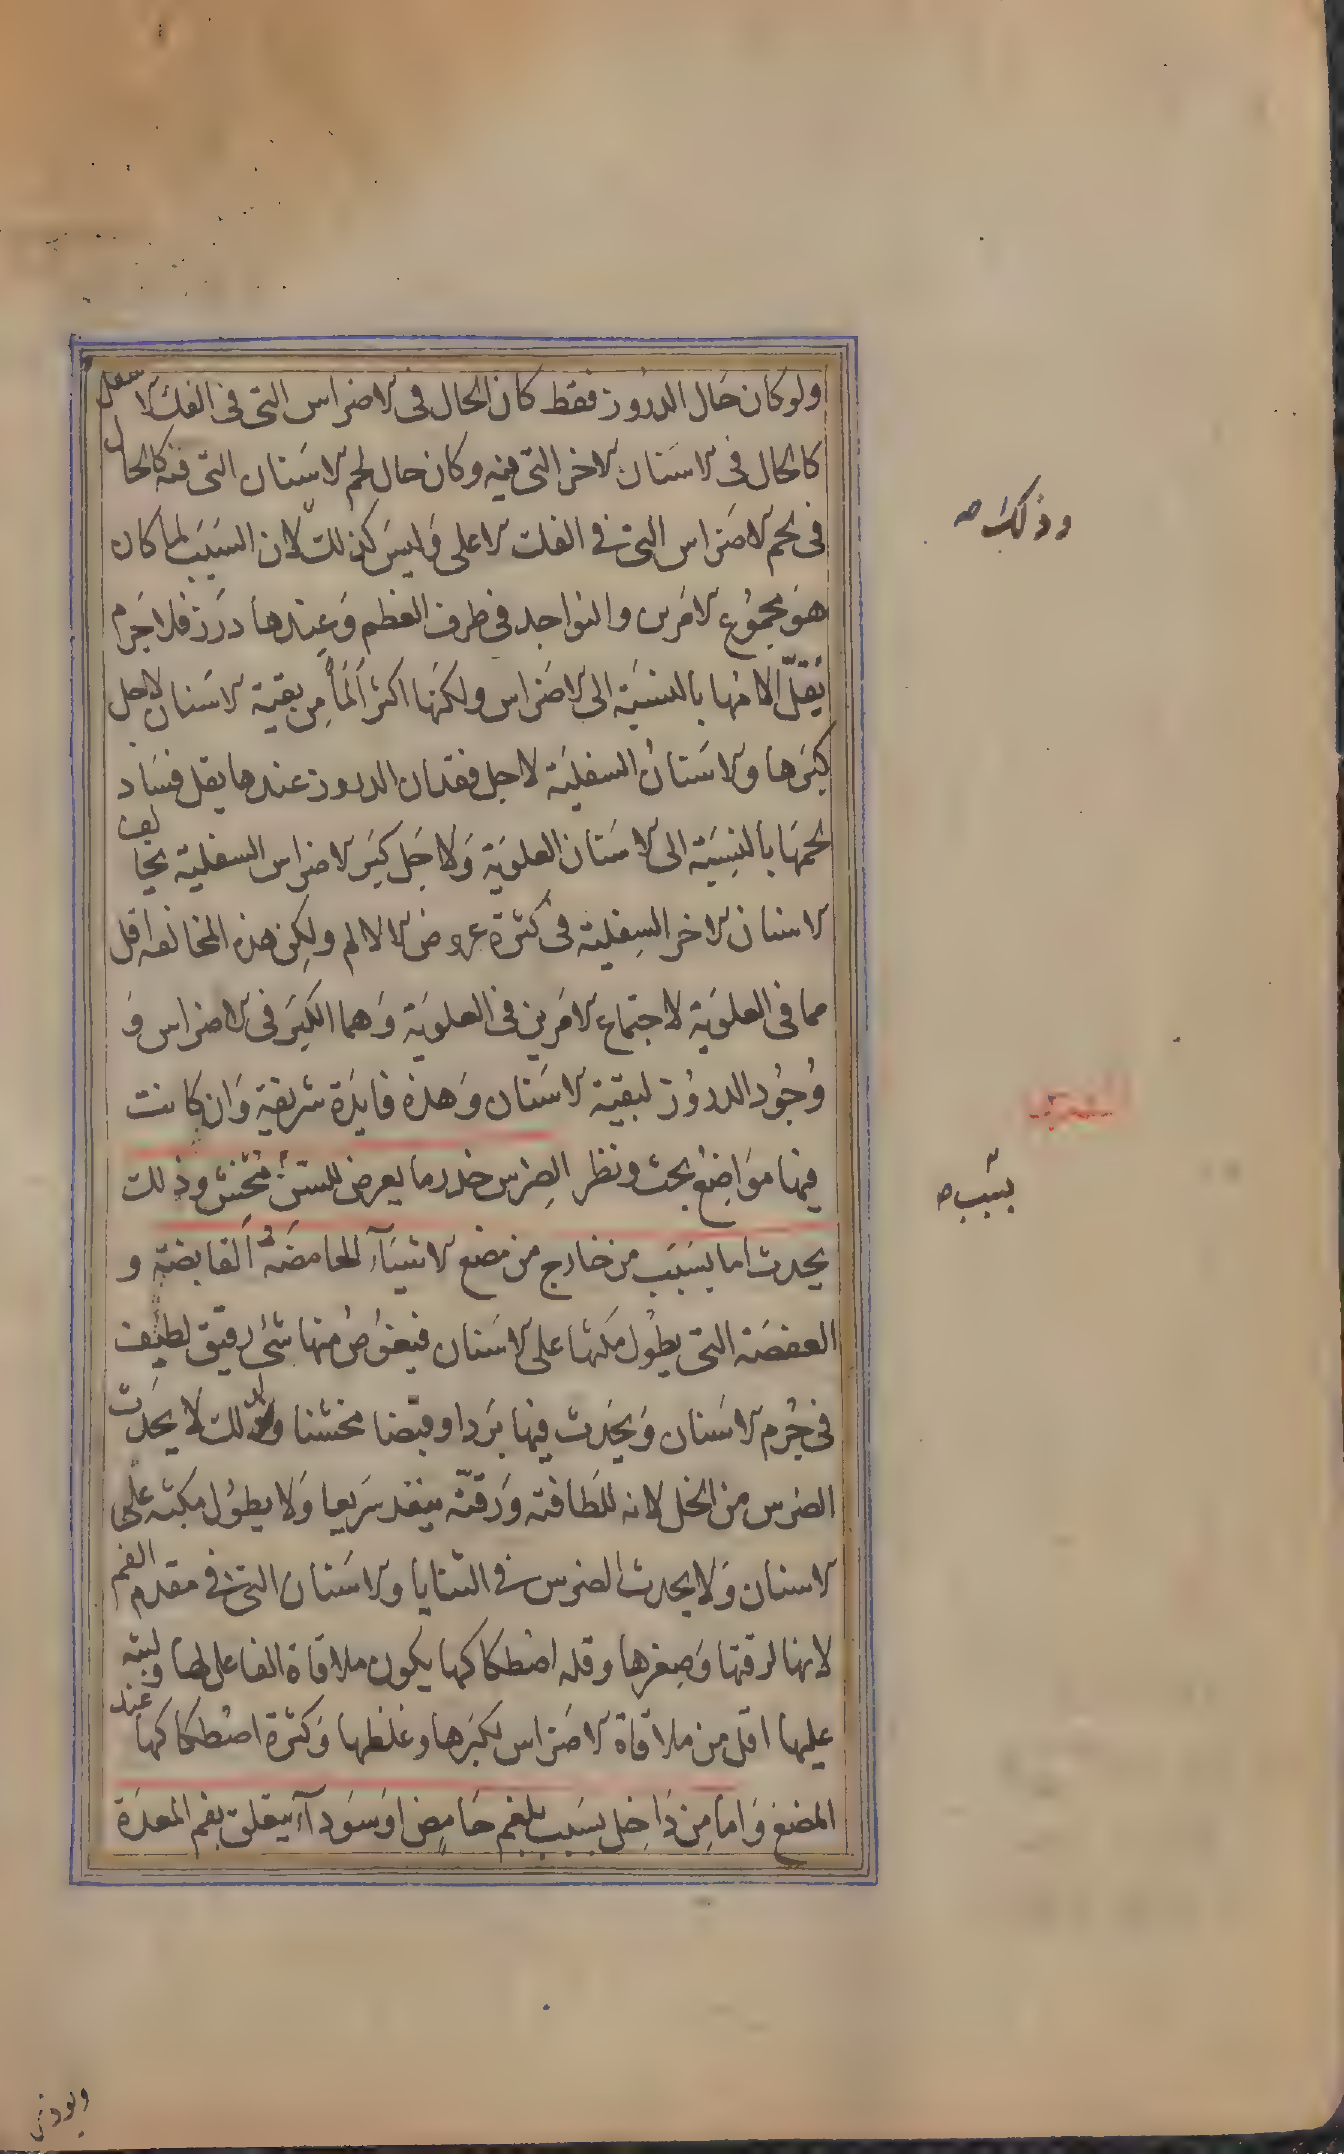 ولو كان حال الدروز فقط كان الحال فى الاضراس التى فى الفك الاسفل
كالحال فى الاسنان الاخر التى فيه وكان حال لحم الاسنان التى فيه كالحال
فى لحم الاضراس التى فى الفك الاعلى وليس كذلك لان السبب لما كان
هو مجموع الامرين والنواجد فى طرف العظم وعندها درز فلا جرم
يقل الامها بالنسبة الى الاضراس ولكنها اكثر الما من بقية الاسنان لاجل
كبرها والاسنان السفلية لاجل فقدان الدروز عندها يقل فساد
لحمها بالنسبة الى الاسنان العلوية ولاجل كبر الاضراس السفلية يخالف
الاسنان الاخر السفلية فى كثرة عروض الالام ولكن هذه المخالفه اقل
مما فى العلوية لاجتماع الامرين فى العلوية وهما الكبر فى الاضراس و
وجود الدروز لبقية الاسنان وهذه فايدة شريفة وان كانت
فيها مواضع بحث ونظر الضرس خدر ما يعرض للسن مخشن وذلك
يحدث اما بسبب من خارج من مضغ الاشياء الحامضة القابضة و
العفصة التى يطول مكثها على الاسنان فيغوص منها شئ رقيق لطيف
فى جرم الاسنان ويحدث فيها بردا وقبضا مخشنا ولذلك لا يحدث
الضرس من الخل لانه للطافته ورقته ينفذ سريعا ولا يطول مكثه على
الاسنان ولا يحدث الضرس فى الثنايا والاسنان التى فى مقدم الفم
لانها لرقتها وصغرها وقله اصطكاكها يكون ملاقاة الفاعل لها ولبثه
عليها اقل من ملاقاة الاضراس لكبرها وغلظها وكثرة اصطكاكها عند
المضغ واما من داخل بسبب بلغم حامض او سوداء يتعلق بفم المعدة
وذلك
بسبب